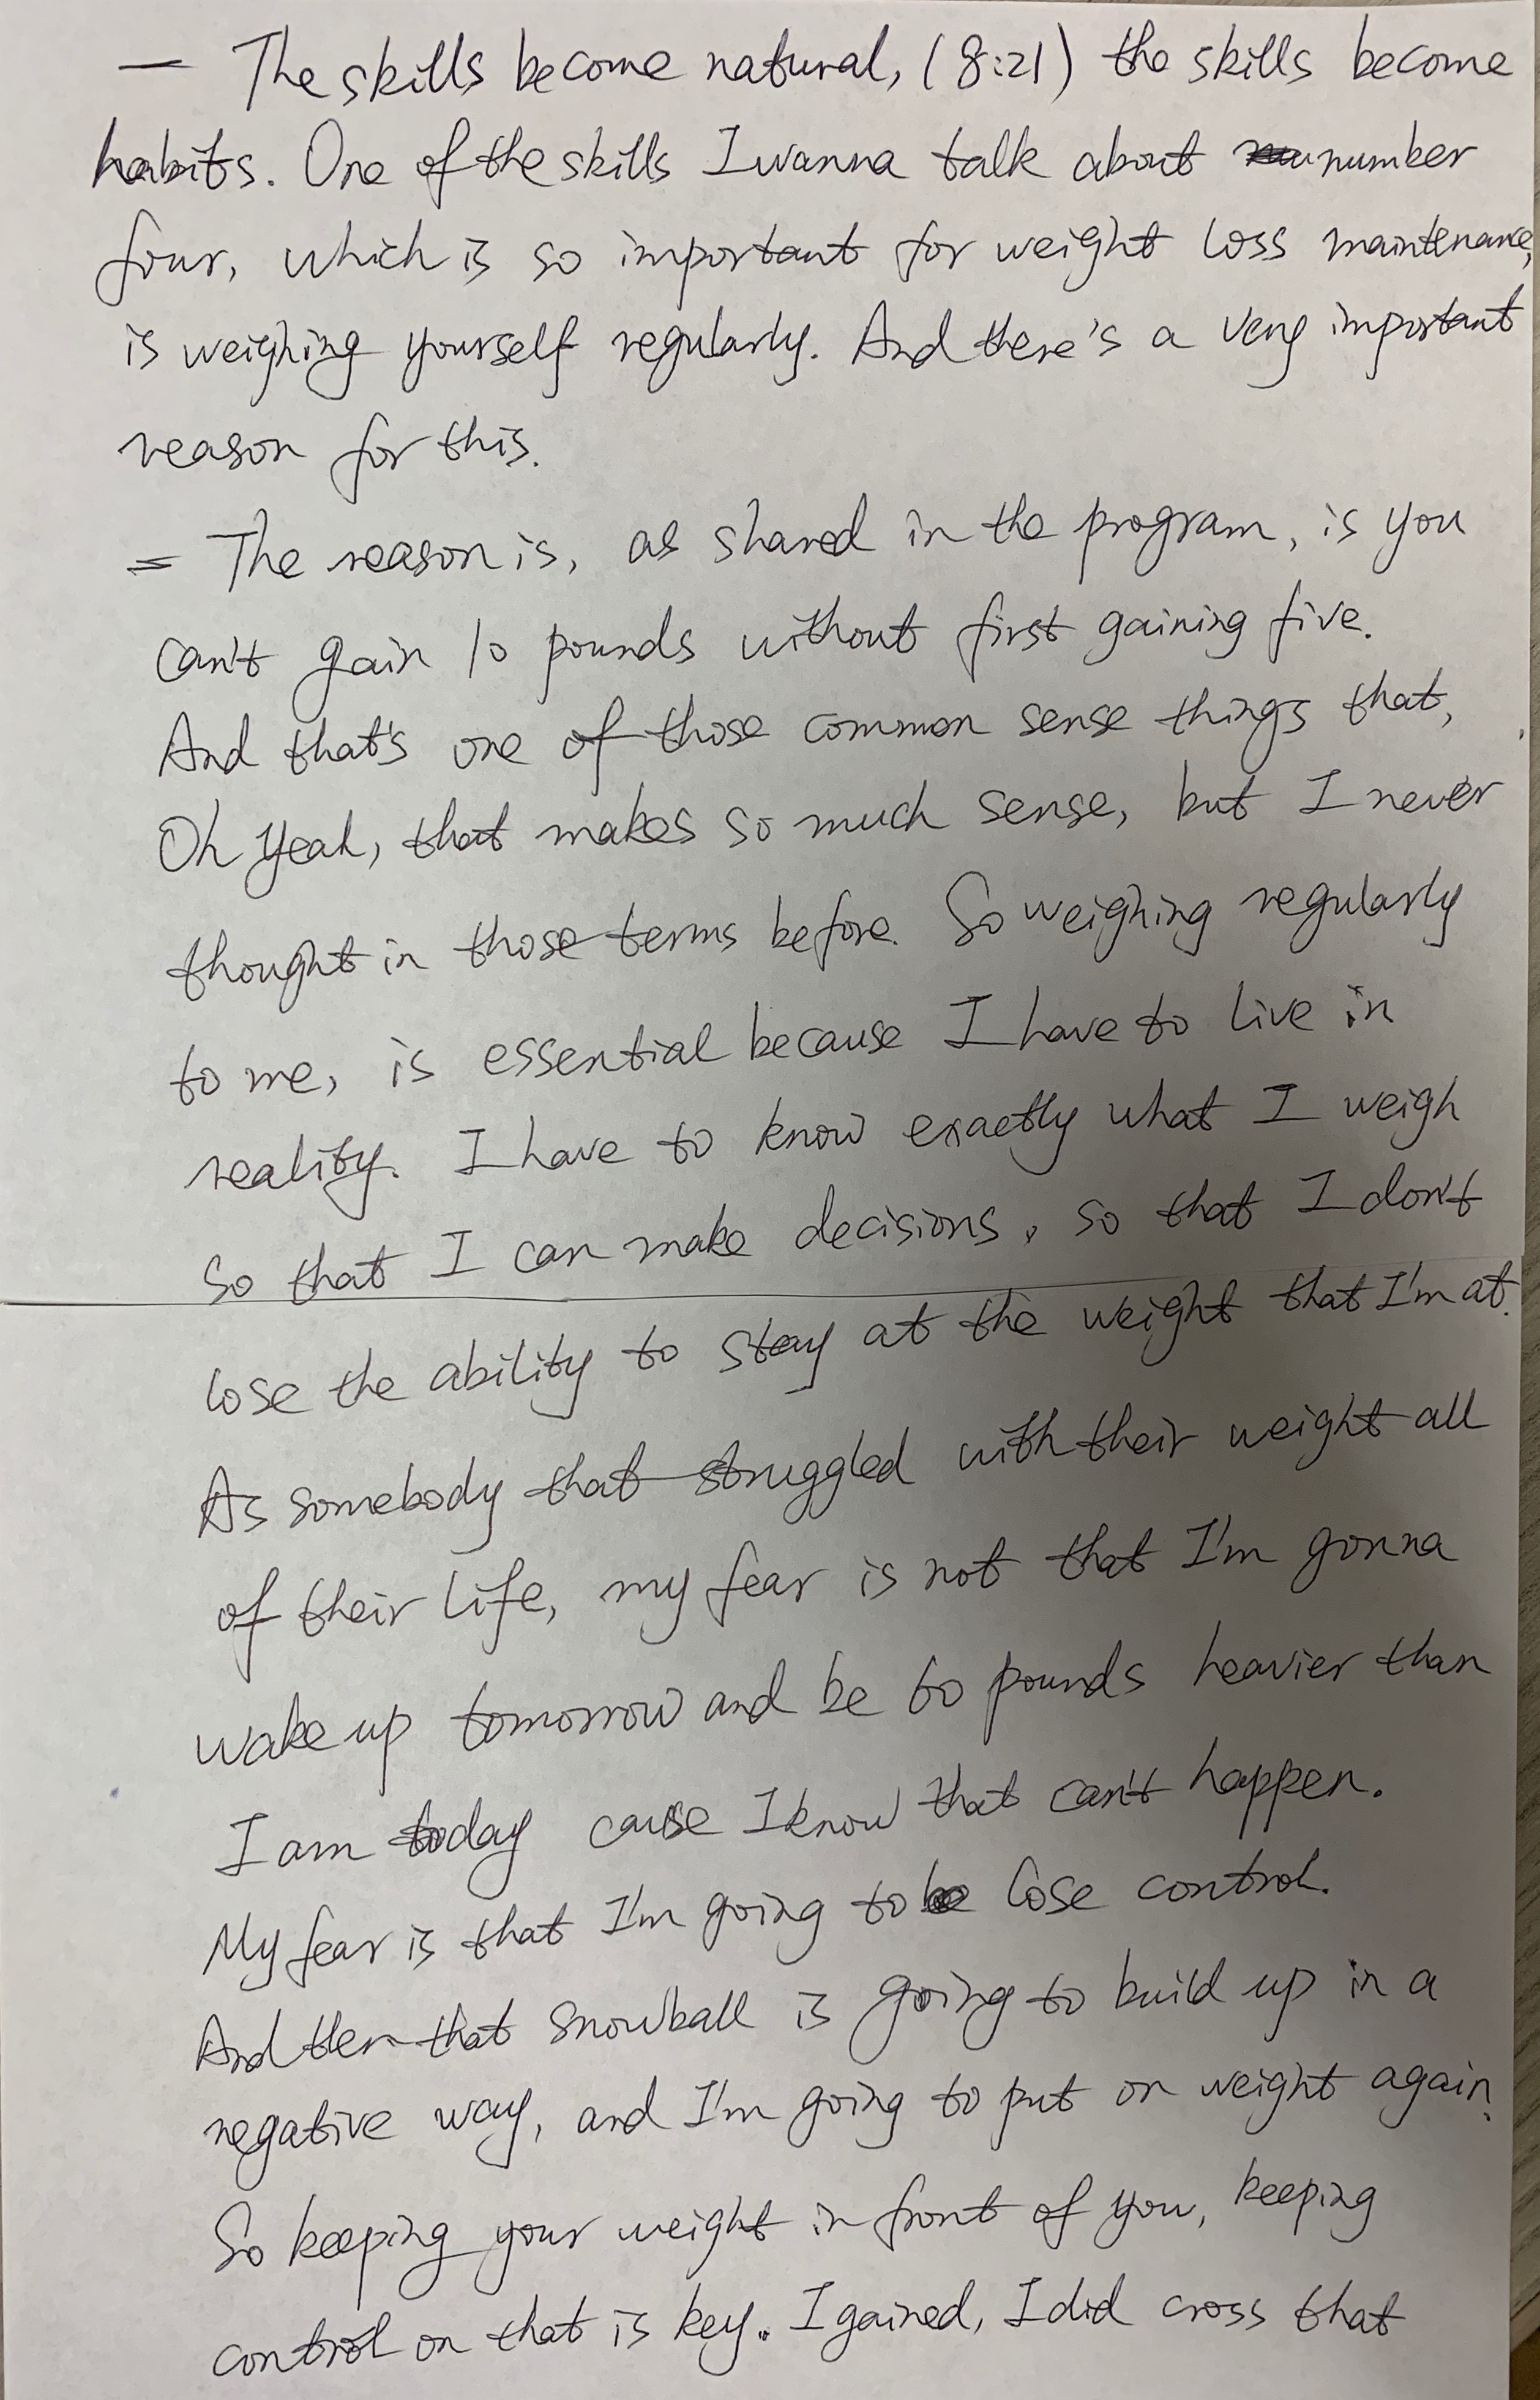 — The skills become natural, (8:21) the skills become
habits. One of the skills I wanna talk about number
four, which is so important for weight loss maintenance,
is weighing yourself regularly. And there's a very important
reason for this.
= The reason is, as shared in the program, is you
can't gain 10 pounds without first gaining five.
And that's one of those common sense things that,
Oh yeah, that makes so much sense, but I never
thought in those terms before. So weighing regularly
to me, is essential because I have to live in
reality. I have to know exactly what I weigh
so that I can make decisions, so that I don't
lose the ability to stay at the weight that I'm at.
As somebody that struggled with their weight all
of their life, my fear is not that I'm gonna
wake up tomorrow and be 60 pounds heavier than
I am today cause I know that can't happen.
My fear is that I'm going to lose control.
And then that snowball is going to build up in a
negative way, and I'm going to put on weight again.
So keeping your weight in front of you, keeping
control on that is key. I gained, I did cross that